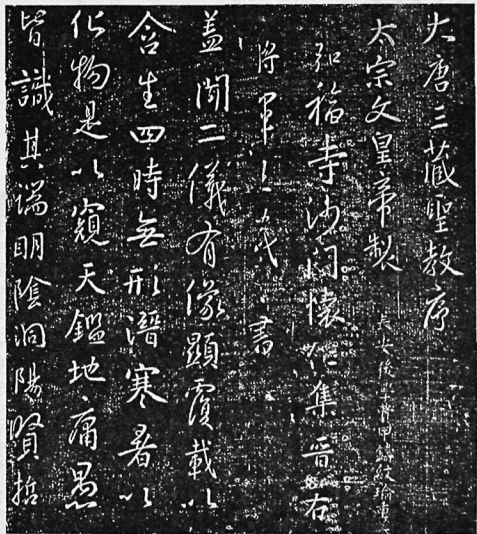 大唐三藏聖教序
太宗文皇帝製
長安後學費甲鑄
弘福寺沙門懷仁集晉右
將軍王羲之書
蓋聞二儀有像顯覆載以
含生四時無形潛寒暑以
化物是以窺天鑑地庸愚
皆識其端明陰洞陽賢哲